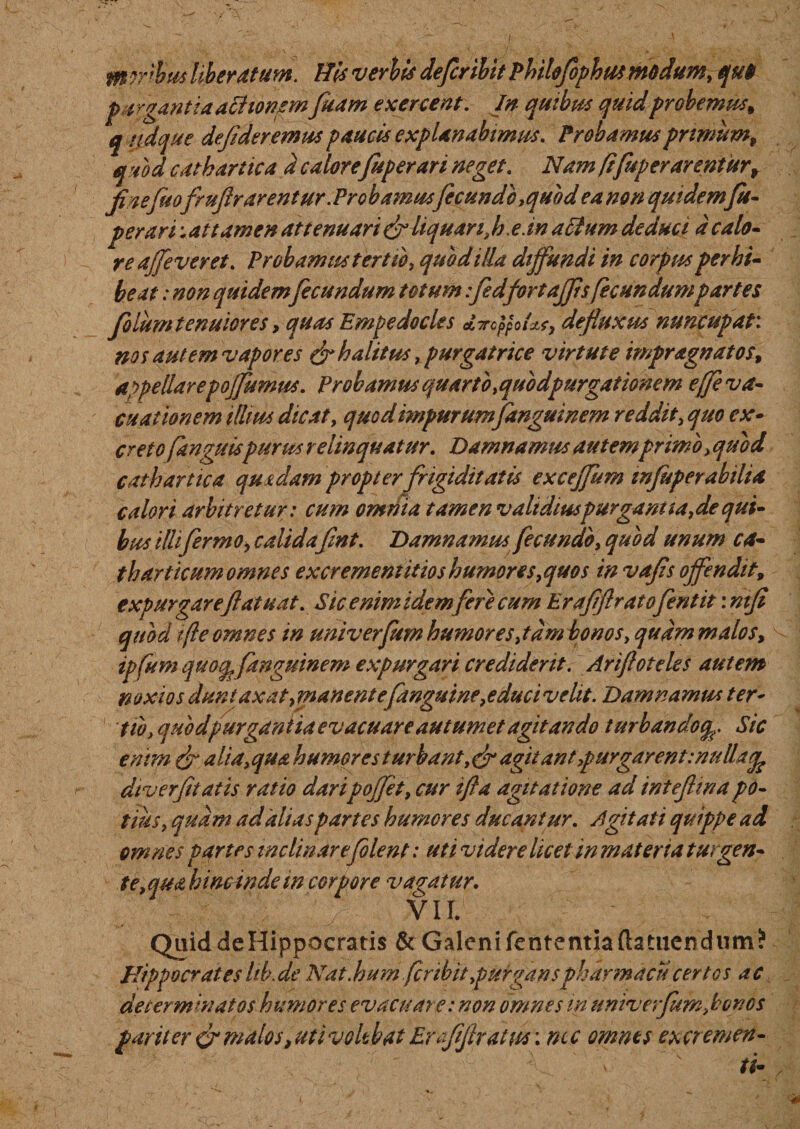 morbus liberatum. His verbis deſcribit Philoſophus modum, quo
purgantia actionem ſuam exercent. In quibus quid probemus,
quidque deſideremus paucis explanabimus. Probamus primùm,
quòd cathartica à calore ſuperari neget. Nam ſi ſuperarentur,
fine ſuo fruſtrarentur. Probamus ſecundò, quòd ea non quidem ſu-
perari: attamen attenuari & liquari, h.e. in actum deduci à calo-
re aſſeveret. Probamus tertiò, quòd illa diffundi in corpus perhi-
beat: non quidem ſecundum totum: ſed fortaſſis ſecundum partes
ſolùm tenuiores, quas Empedocles ἀποῤῥοίας, defluxus nuncupat:
nos autem vapores & halitus, purgatrice virtute imprægnatos,
appellare poſſumus. Probamus quartò, quòd purgationem eſſe va-
cuationem illius dicat, quod impurum ſanguinem reddit, quo ex-
creto ſanguis purus relinquatur. Damnamus autem primò, quòd
cathartica quædam propter frigiditatis exceſſum inſuperabilia
calori arbitretur: cum omnia tamen validius purgantia, de qui-
bus illi ſermo, calida ſint. Damnamus ſecundò, quòd unum ca-
tharticum omnes excrementitios humores, quos in vaſis offendit,
expurgare ſtatuat. Sic enim idem ferè cum Eraſiſtrato ſentit: niſi
quòd iſte omnes in univerſum humores, tàm bonos, quàm malos,
ipſumquoq; ſanguinem expurgari crediderit. Ariſtoteles autem
noxios duntaxat, manente ſanguine, educi velit. Damnamus ter-
tiò, quòd purgantia evacuare autumet agitando turbandoq;. Sic
enim & alia, quæ humores turbant, & agitant, purgarent: nullaq;
diverſitatis ratio dari poſſet, cur iſta agitatione ad inteſtina po-
tiùs, quàm ad alias partes humores ducantur. Agitati quippe ad
omnes partes inclinare ſolent: uti videre licet in materia turgen-
te, quæ hinc inde in corpore vagatur.
VII.
Quid de Hippocratis & Galeni ſententia ſtatuendum?
Hippocrates lib. de Nat. hum. ſcribit, purgans pharmacū certos ac
determinatos humores evacuare: non omnes in univerſum, bonos
pariter & malos, uti volebat Eraſiſtratus: nec omnes excremen-
ti-